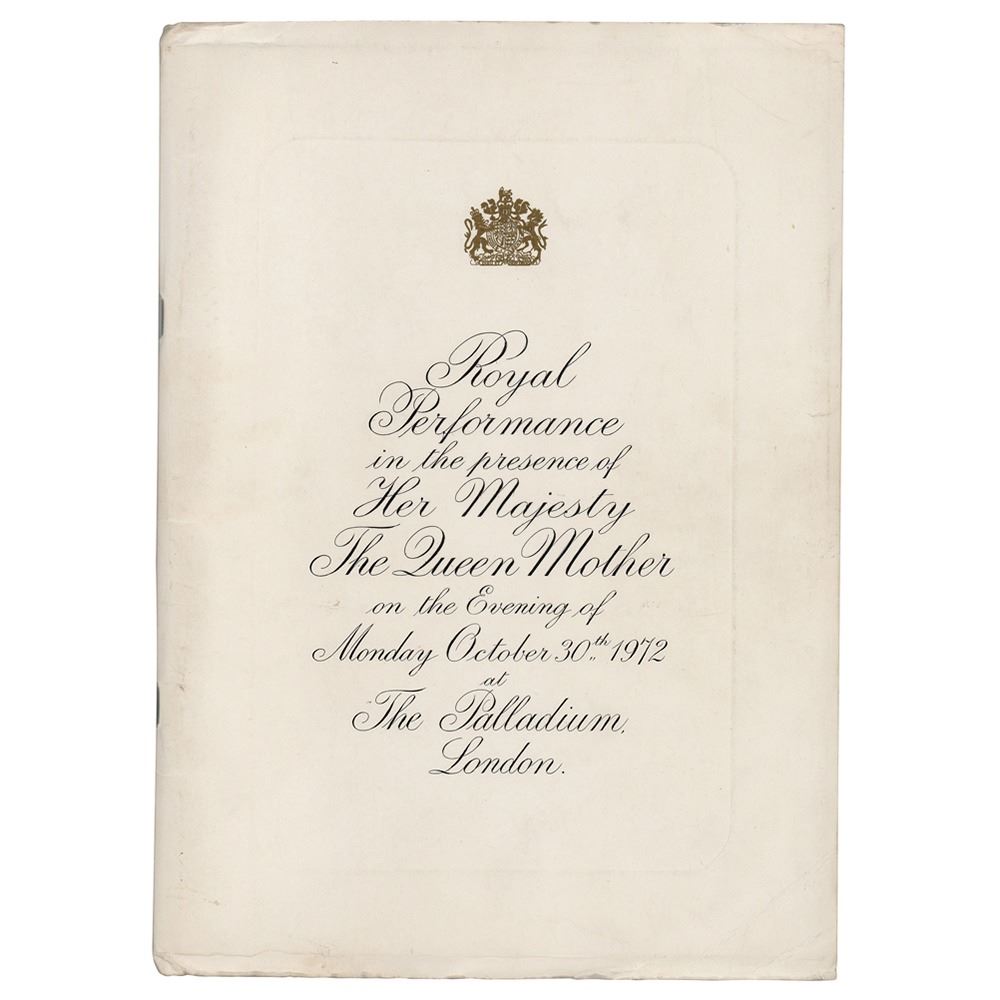 Royal
Performance
in the presence of
Her Majesty
The Queen Mother
on the Evening of
Monday October 30th 1972
at
The Palladium,
London.